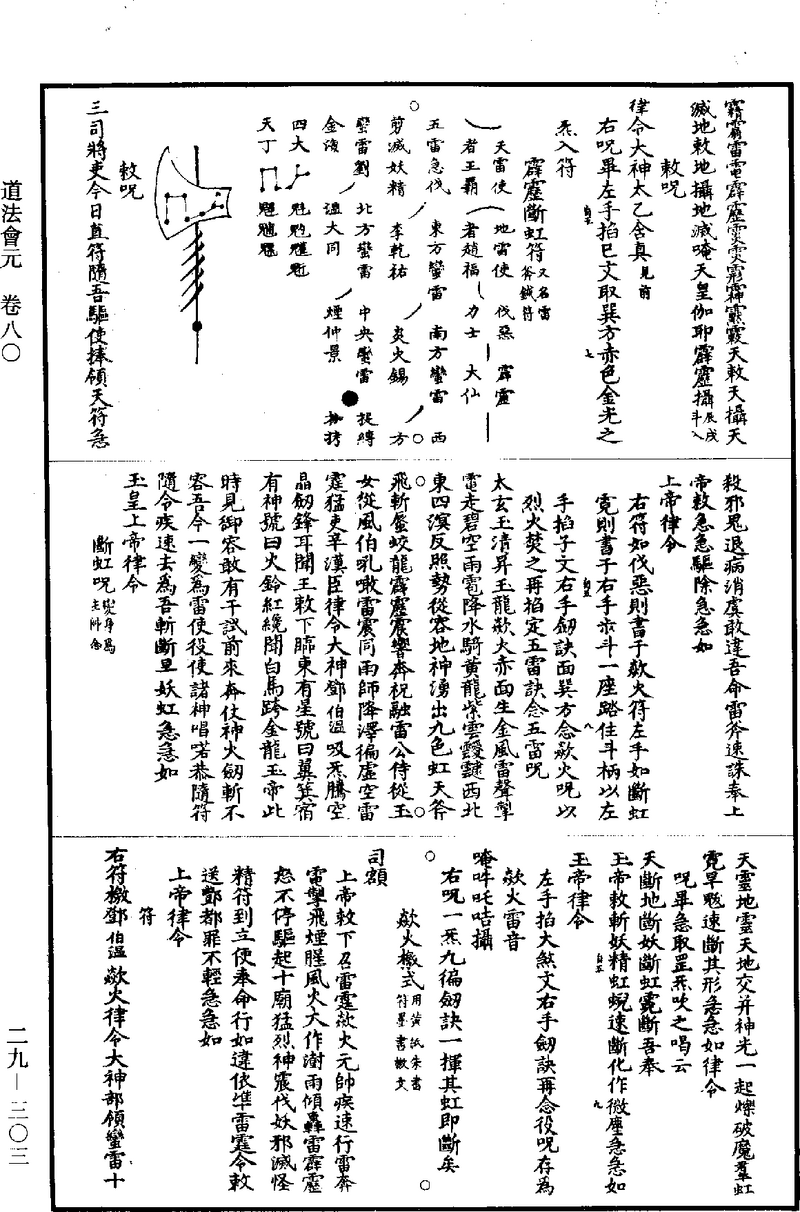 道法會元 卷八〇
二九—三〇三
滅地敕地攝地滅唵天皇伽耶霹靂攝辰戌斗入
敕呪
律令大神太乙含真見前
右呪畢左手掐巳文取巽方赤色金光之
炁入符
霹靂斷虹符又名雷斧鉞符
天雷使 地雷使 伐惡 霹靂
者王霸 者趙福 力士 大仙
五雷急伐 東方蠻雷 南方蠻雷 西
剪滅妖精 李乾祐 炎火錫 方
蠻雷劉 北方蠻雷 中央蠻雷 捉縛
金濱 溫大同 煙仲景 拷
四大
天丁
敕呪
三司將吏今日直符隨吾驅使捧領天符急
殺邪鬼退病消虞敢違吾命雷斧速誅奉上
帝敕急急驅除急急如
上帝律令
右符如伐惡則書于歘火符左手如斷虹
霓則書于右手步斗一座踏住斗柄以左
手掐子文右手劒訣面巽方念歘火呪以
烈火焚之再掐定五雷訣念五雷呪
太玄玉清昇玉龍歘火赤面生金風雷聲掣
電走碧空雨雹降水騎黄龍紫雲靉靆西北
東四溟反照勢從容地神湧出九色虹天斧
飛斬蜃蛟龍霹靂震響奔祝融雷公侍從玉
女從風伯吼嗽雷震同雨師降澤徧虛空雷
霆猛吏辛漢臣律令大神鄧伯溫吸炁騰空
晶劒鋒耳聞王敕下臨東有星號曰翼箕宿
有神號曰火鈴紅纔聞白馬跨金龍玉帝此
時見御容敢有干試前來奔仗神火劒斬不
容吾今一變爲雷使役使諸神唱喏恭隨符
隨令疾速去爲吾斬斷旱妖虹急急如
玉皇上帝律令
斷虹呪變身爲主帥念
天靈地靈天地交并神光一起爍破魔羣虹
霓旱魃速斷其形急急如律令
呪畢急取罡炁吹之喝云
天斷地斷妖斷虹霓斷吾奉
玉帝敕斬妖精虹蜺速斷化作微塵急急如
玉帝律令
左手掐大煞文右手劒訣再念役呪存爲
歘火雷音
唵吽吒咭攝
右呪一炁九徧劒訣一揮其虹即斷矣
歘火檄式用黄紙朱書符墨書檄文
司額
上帝敕下召雷霆歘火元帥疾速行雷奔
電掣飛煙腥風火大作澍雨傾轟雷霹靂
怒不停驅起十廟猛烈神震伐妖邪滅怪
精符到立便奉命行如違依準雷霆令敕
送酆都罪不輕急急如
上帝律令
符
右符檄鄧伯溫歘火律令大神部領蠻雷十